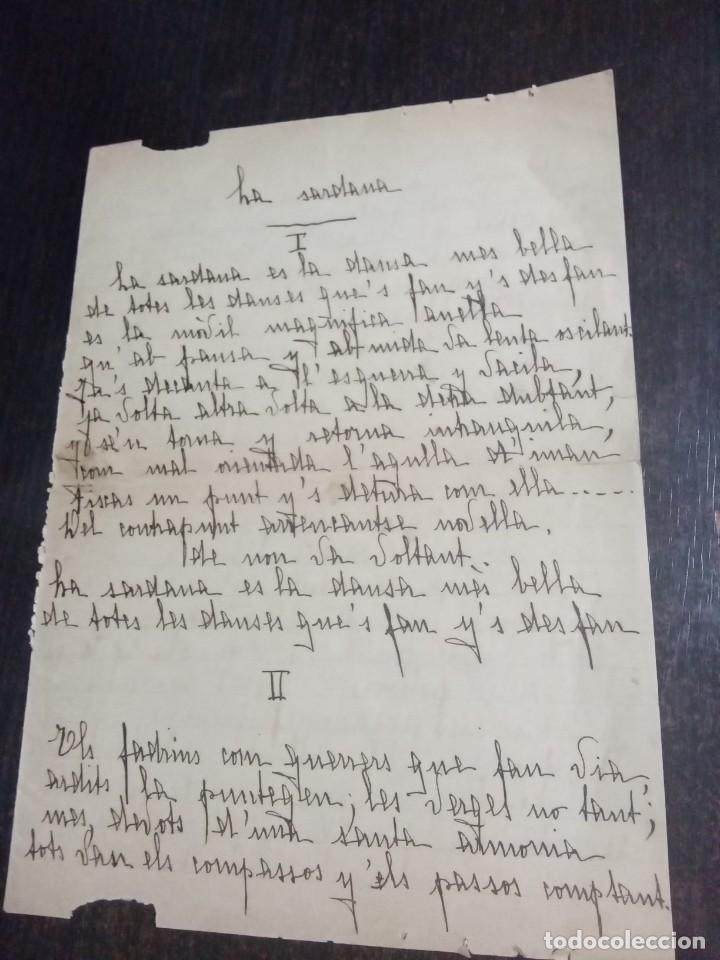 La sardana
I
La sardana es la dansa mes bella
de totes les danses que's fan y's desfan
es la mòdil magnifica anella
qu'ab pausa y ab mida va lenta oscilant.
Ja's decanta a l'esquerra y vacila,
ja volta altra volta a la dreta dubtant,
y se'n torna y retorna intranquila,
com mal orientada l'agulla d'iman
Fixas un punt y's detura com ella.....
Del contrapunt arrencantse novella,
de nou va voltant.
La sardana es la dansa mès bella
de totes les danses que's fan y's desfan
II
Els fadrins com guerrers que fan via,
ardits la puntegen; les verges no tant;
mes, devots d'una santa armonia
tots van els compassos y'els passos comptant.
todocoleccion